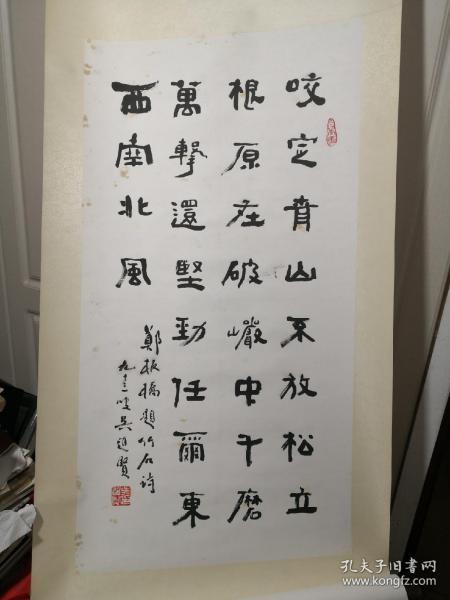 咬定青山不放松立
根原在破巖中千磨
萬擊還堅勁任爾東
西南北風
鄭板橋題竹石詩
九十三叟吴進賢
孔夫子旧书网
www.kongfz.com